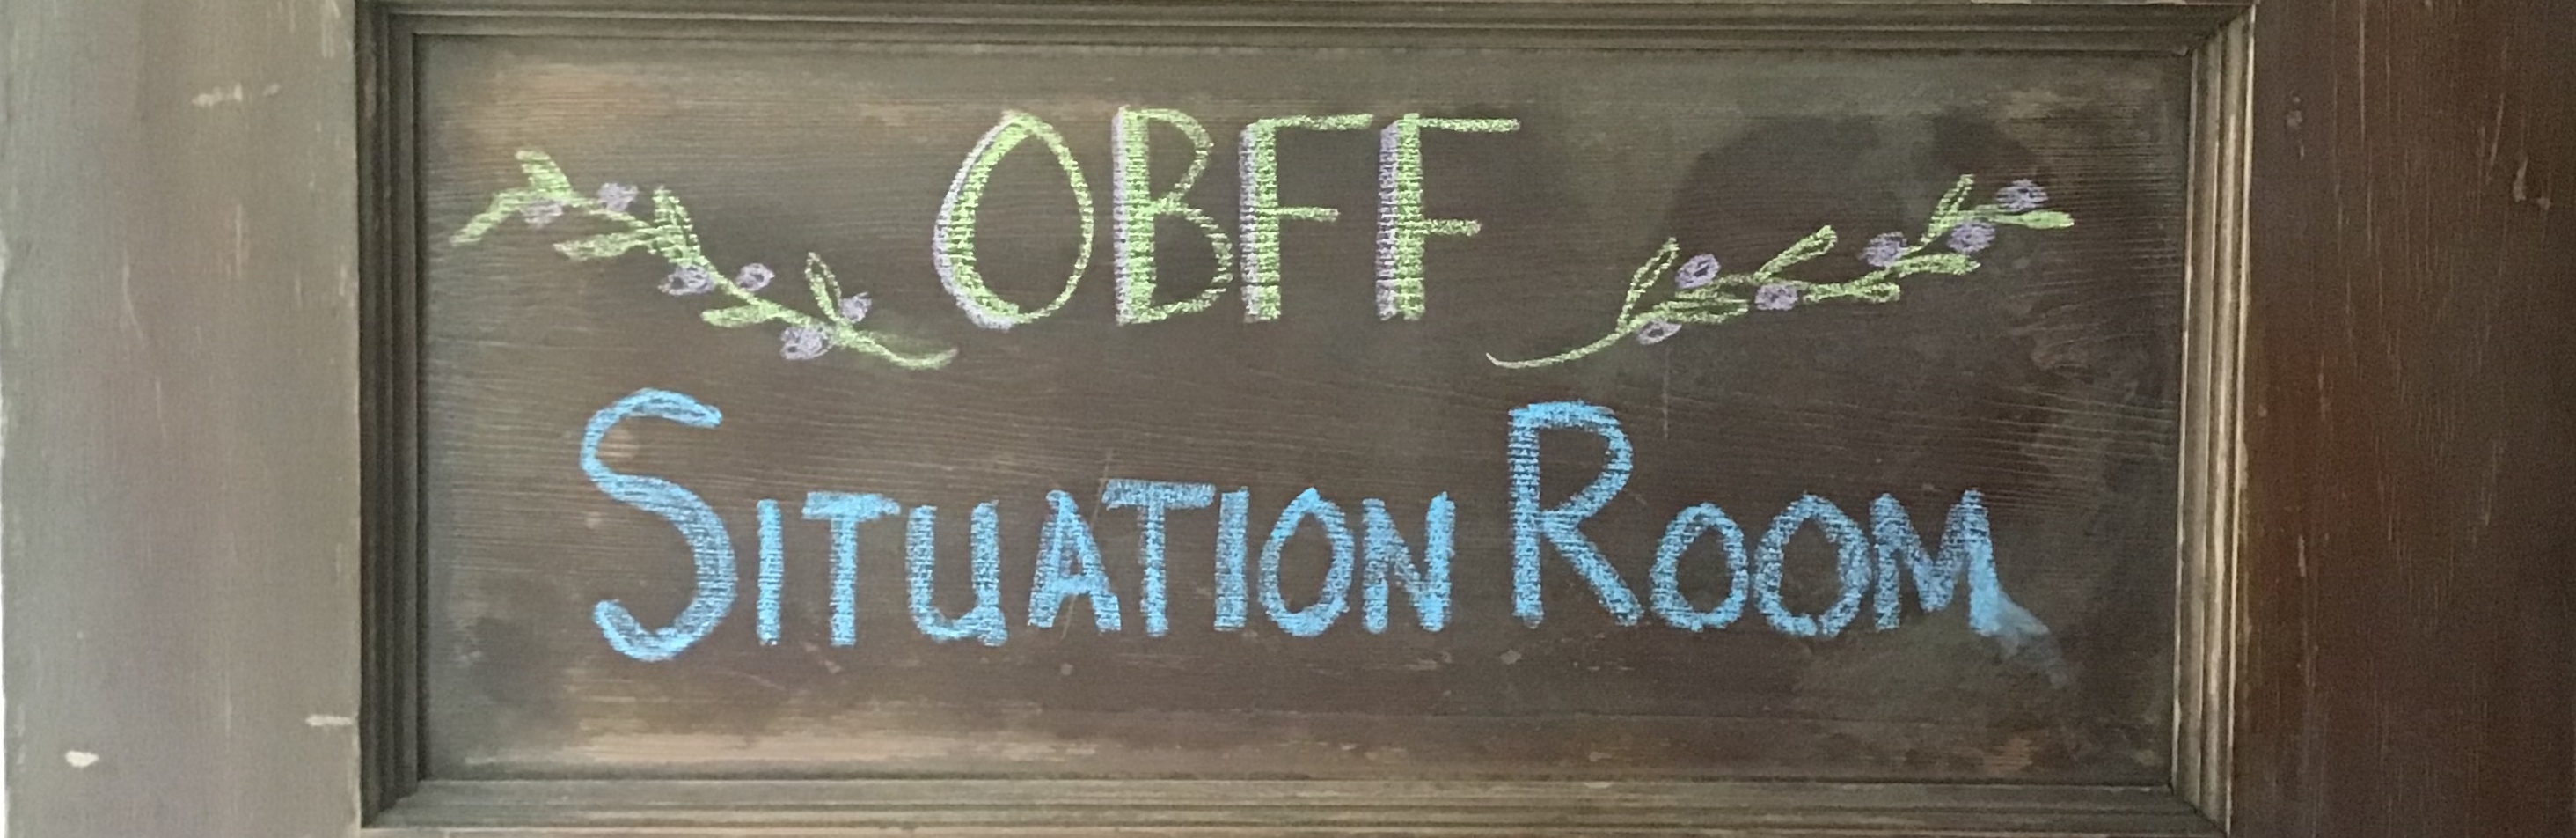 OBFF
SITUATION ROOM